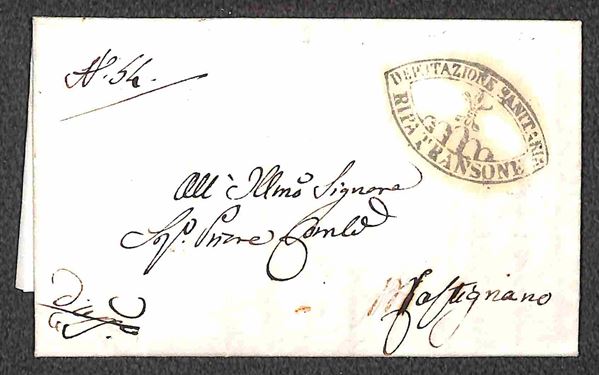 N.° 54.
DEPUTAZIONE SANITARIA
RIPATRANSONE
All' Illmo Signore
Sig.r Priore Comle
Castignano